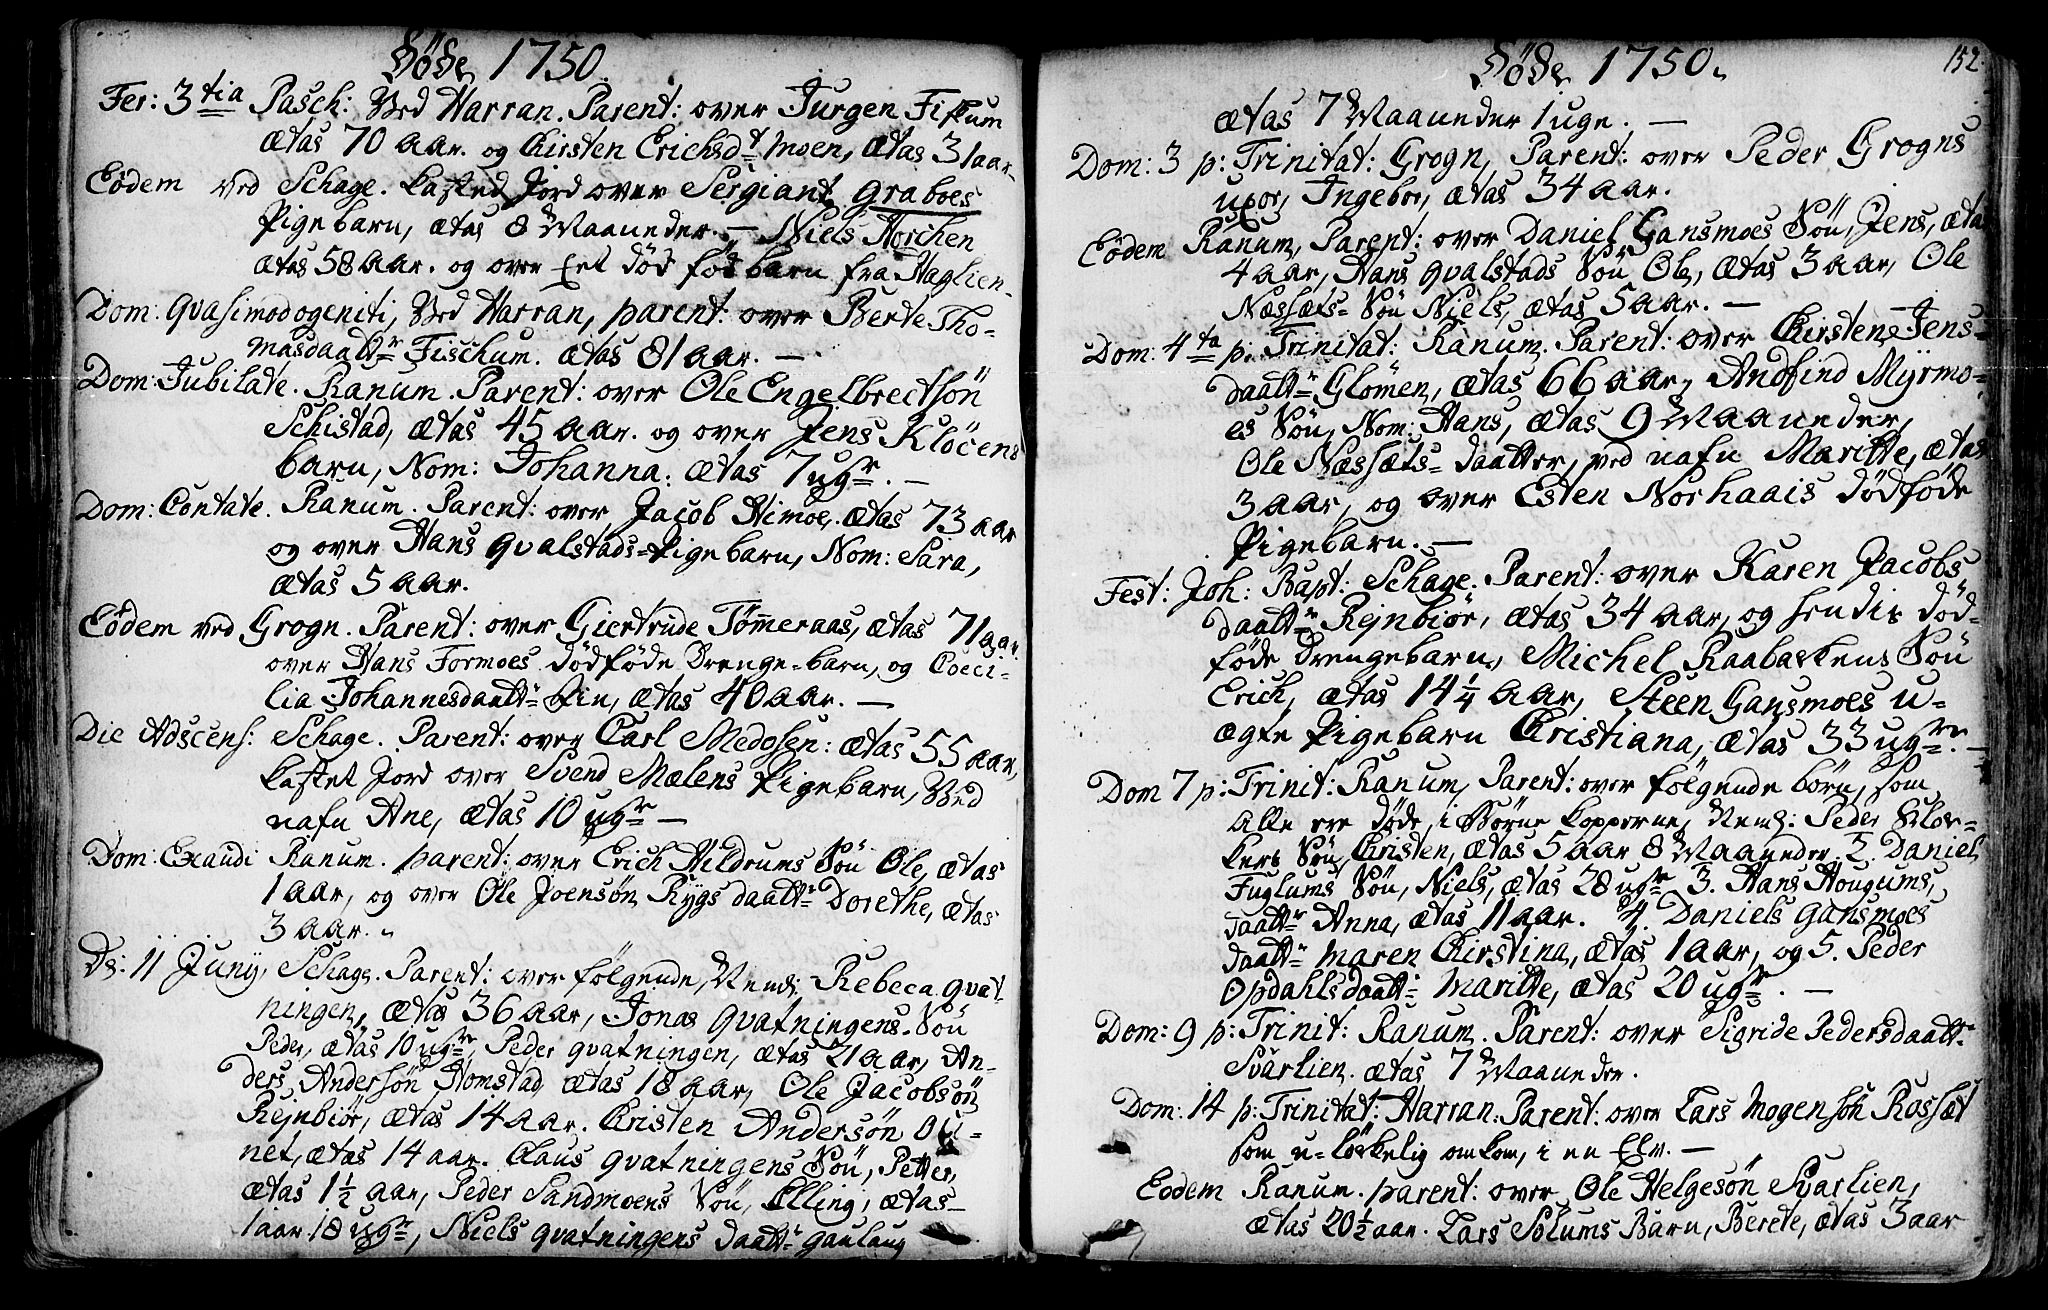 Döde 1750.
Fer: 3tia Pasch: Ved Harran. Parent: over Jurgen Fiskum
ætas 70 aar. og Kirsten Erichsdt Moen, ætas 31 aar.
Eôdem ved Schage. kasted Jord over Sergiant Graboes
Pigebarn, ætas 8 Maaneder. — Niels
ætas 58 aar. og over Eet död föd barn fra Haglien.
Dom: Qvasimodogeniti, Ved Harran, parent: over Berte Tho-
masdaattr Fischum. ætas 81 aar. —
Dom: Jubilate. Ranum. Parent: over Ole Engelbrectsön
Schistad, ætas 45 aar. og over Jens Klöcens
barn, Nom: Johanna. ætas 7 ugr. —
Dom: Cantate. Ranum. Parent: over Jacob Himoe. ætas 73 aar
og over Hans Qvalstads Pigebarn, Nom: Sara,
ætas 5 aar.
Eôdem ved Grogn. Parent: over Giertrude Tömmeraas, ætas 71 aar.
over Hans Formoes dödföde Drenge-barn, og Coeci-
lia Johannesdaattr Fin, ætas 40 aar. —
Die Adscens: Schage. Parent: over Carl Medosen: ætas 55 aar,
kastet Jord over Svend Mælens Pigebarn, Ved
nafn Ane, ætas 10 ugr —
Dom: Exaudi Ranum. parent: over Erich Hildrums Sön Ole, ætas
1 aar, og over Ole Joensön Rygs daattr Dorethe, ætas
3 aar.
D: 11 Junij, Schage. Parent: over fölgende, Neml: Rebeca Qvat-
ningen, ætas 36 aar, Jonas Qvatningens Sön
Peder, ætas 10 ugr, Peder Qvatningen, ætas 21 aar, An-
ders Andersön Homstad, ætas 18 aar, Ole Jacobsön
Rejnbiör, ætas 14 aar. Kristen Andersön Ou-
net, ætas 14 aar. Claus Qvatningens Sön, Petter,
ætas 1½ aar, Peder Sandmoens Sön, Elling, ætas
1 aar 18 ugr, Niels Qvatningens daattr Gaulaug
Döde 1750.
152
ætas 7 Maaneder 1 uge. —
Dom: 3 p: Trinitat: Grogn, Parent: over Peder Grogns
uxor, Ingebor, ætas 34 aar.
Eôdem Ranum, Parent: over Daniel Gansmoes Sön, Jens, ætas
4 aar, Hans Qvalstads Sön Ole, ætas 3 aar, Ole
Næssets Sön Niels, ætas 5 aar. —
Dom: 4ta p: Trinitat: Ranum. Parent: over Kirsten Jens-
daattr Glömen, ætas 66 aar, Andfind Myrmo-
es Sön, Nom: Hans, ætas 9 Maaneder,
Ole Næssæts daatter, ved nafn Maritte, ætas
3 aar, og over Esten Norhaais dödföde
Pigebarn. —
Fest: Joh: Bapt: Schage. Parent: over Karen Jacobs
daattr Rejnbiör, ætas 34 aar, og hendis död-
föde Drengebarn, Michel Raabackens Sön
Erich, ætas 14¼ aar, Steen Gansmoes u-
ægte Pigebarn Christiana, ætas 33 ugr. —
Dom 7 p: Trinit: Ranum, Parent: over fölgende börn, som
alle ere döde i Börne kopperne, Neml: Peder Klor-
kers Sön, Christen, ætas 5 aar 8 Maaneder. 2. Daniel
Fuglums Sön, Niels, ætas 28 ugr 3. Hans Hougums,
daattr Anna, ætas 11 aar. 4. Daniels Gansmoes
daattr Maren Kirstina, ætas 1 aar, og 5. Peder
Opdahls daattr Maritte, ætas 20 ugr. —
Dom: 9 p: Trinit: Ranum. Parent: over Sigride Pedersdaattr
Svarlien. ætas 7 Maaneder.
Dom: 14 p: Trinitat: Harran. Parent: over Lars Mogensön Rossæt
som u-löckelig omkom, i en Elv. —
Eodem Ranum. parent: over Ole Helgesön Svarlien,
ætas 20½ aar. Lars Solums Barn, Berete, ætas 3 aar